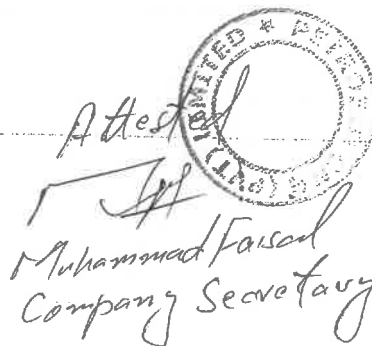 Attested
Muhammad Faisal
Company Secretary
(PVT) LIMITED *